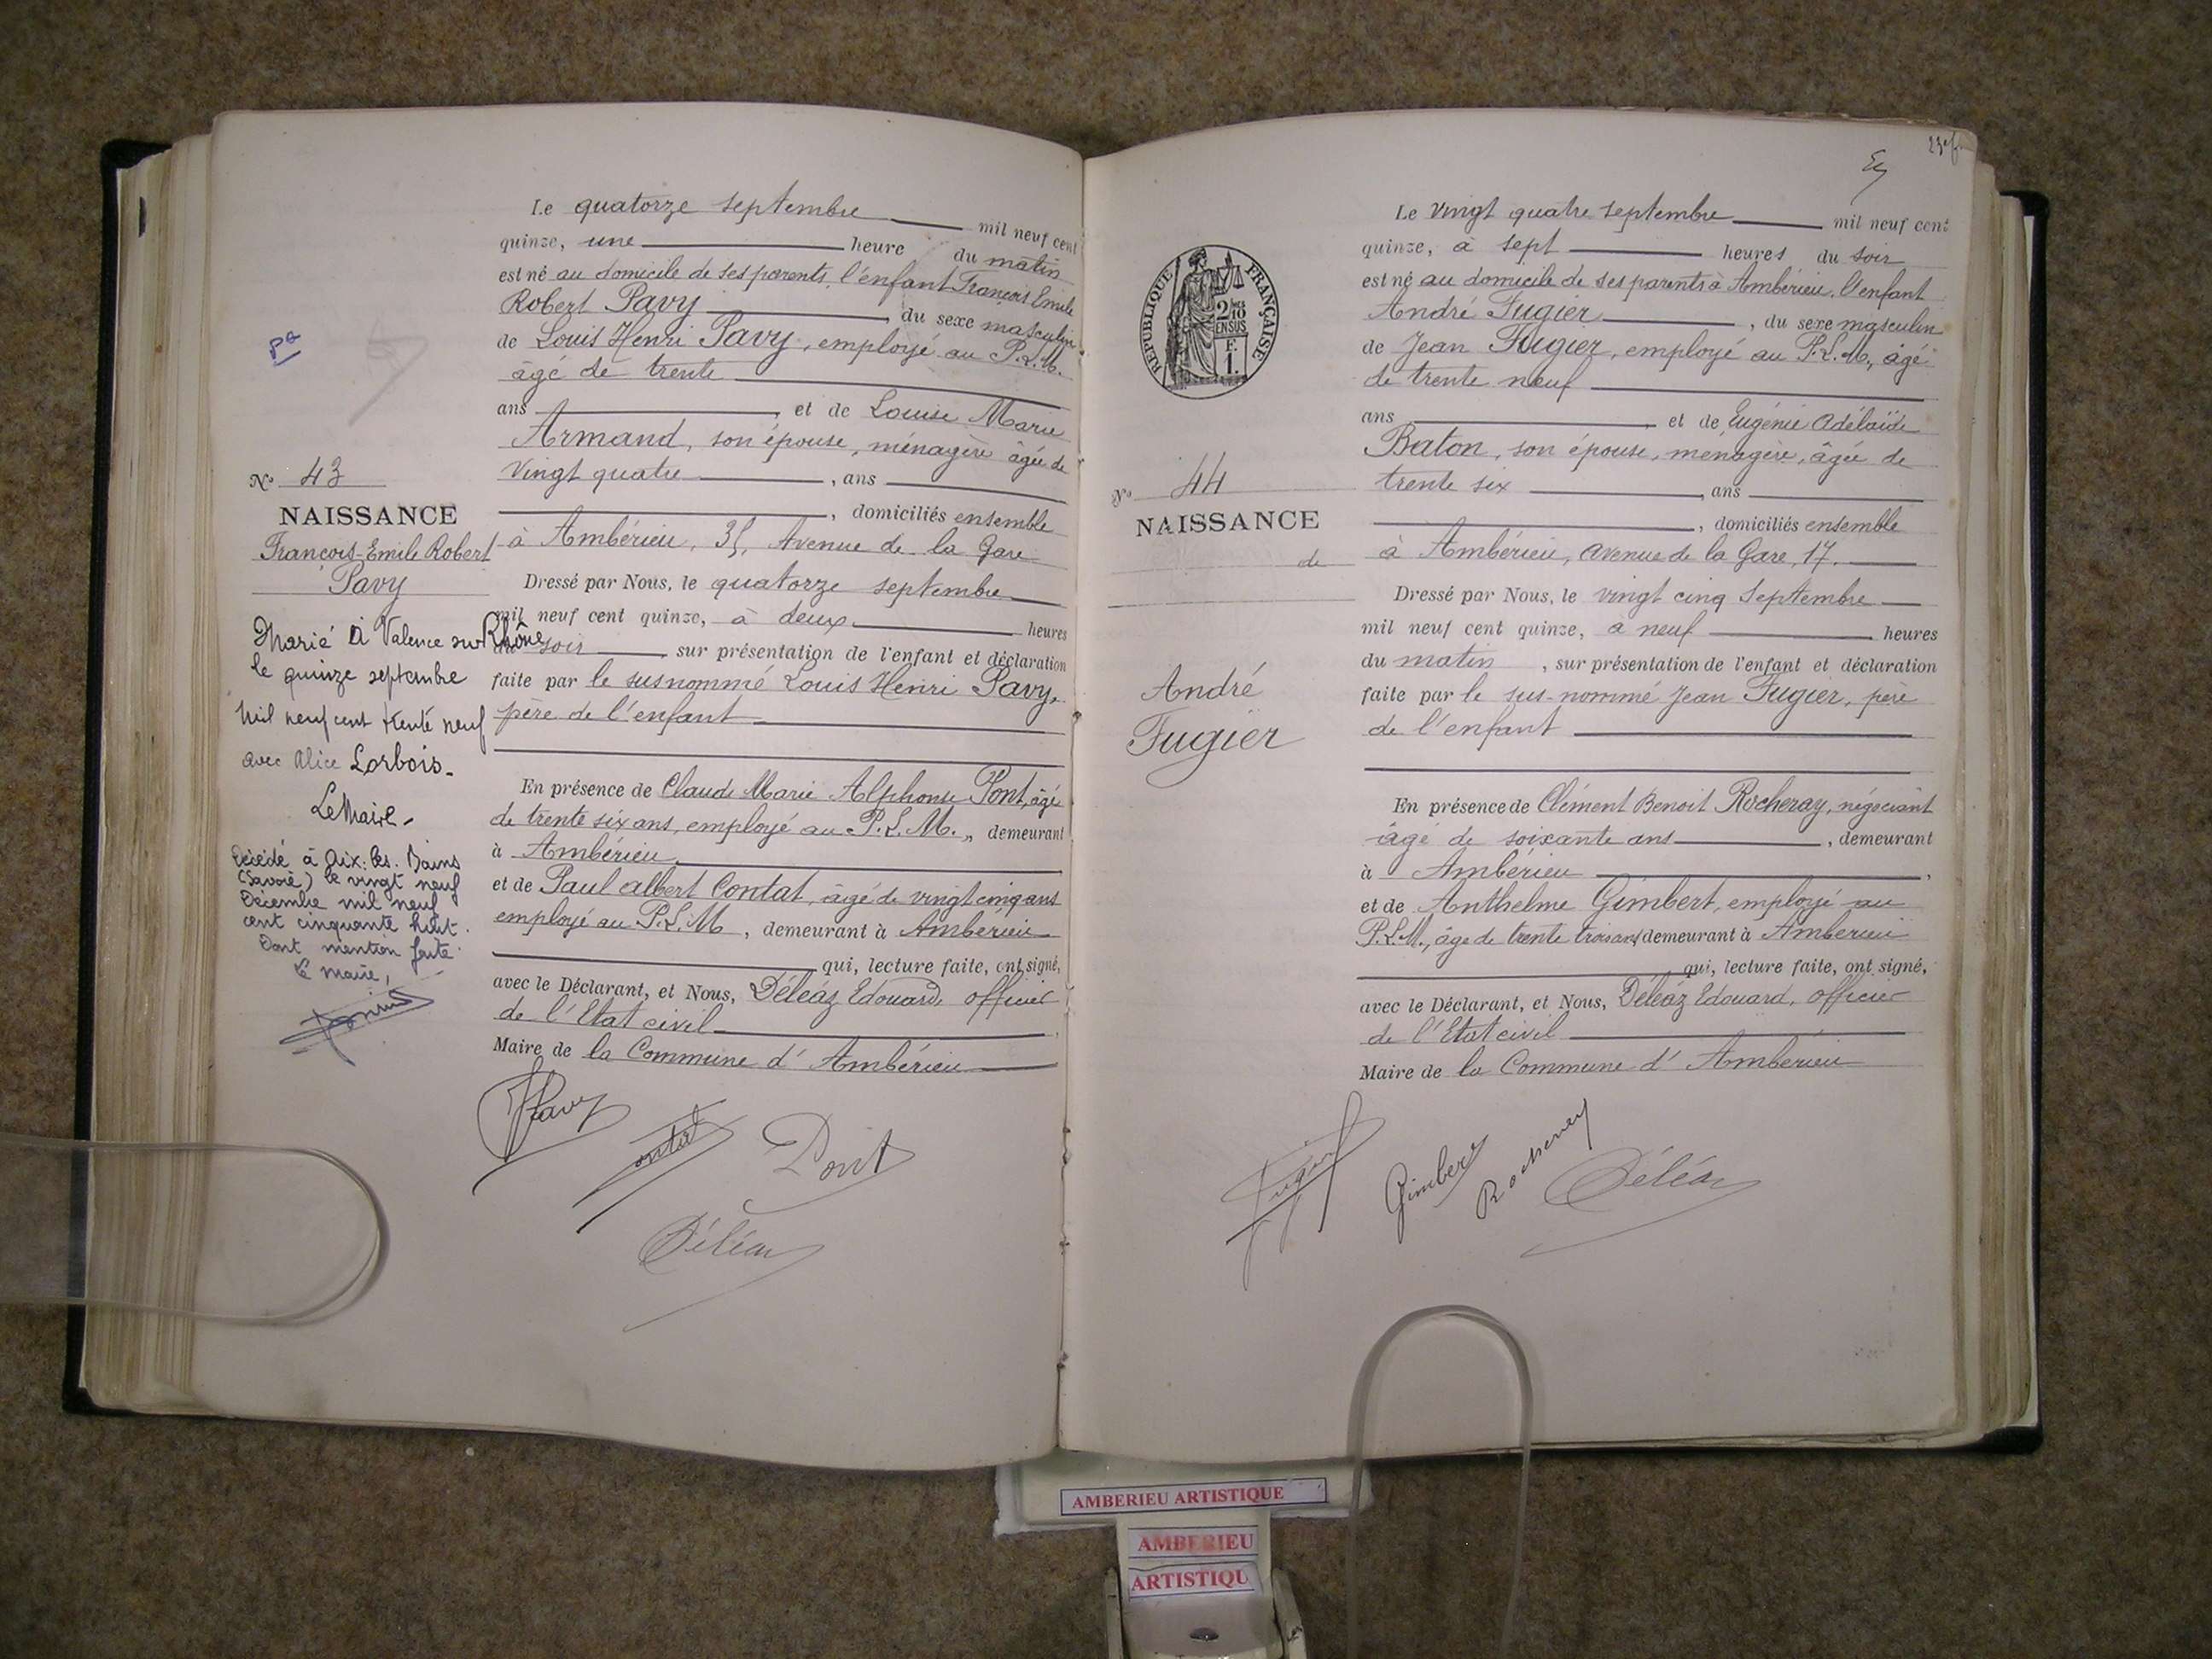 Le quatorze septembre mil neuf cent
quinze, une heure du matin
est né au domicile de ses parents, l'enfant François Emile
Robert Pavy, du sexe masculin
de Louis Henri Pavy, employé au P.L.M.
âgé de trente
ans, et de Louise Marie
Armand, son épouse, ménagère âgée de
vingt quatre, ans
, domiciliés ensemble
à Ambérieu, 35, Avenue de la Gare
Dressé par Nous, le quatorze septembre
mil neuf cent quinze, à deux heures
du soir, sur présentation de l'enfant et déclaration
faite par le susnommé Louis Henri Pavy,
père de l'enfant
En présence de Claude Marie Alphonse Pont, âgé
de trente six ans, employé au P.L.M., demeurant
à Ambérieu,
et de Paul Albert Contat, âgé de vingt cinq ans
employé au P.L.M, demeurant à Ambérieu
qui, lecture faite, ont signé,
avec le Déclarant, et Nous, Déléaz Edouard, officier
de l'Etat civil
Maire de la Commune d'Ambérieu
Pavy
Pont
Déléaz
No 43
NAISSANCE
François-Emile Robert
Pavy
Marié à Valence sur Rhône
le quinze septembre
mil neuf cent trente neuf
avec Alice Lorbois.
Le Maire.
Décédé à Aix-les-Bains
(Savoie) le vingt neuf
Décembre mil neuf
cent cinquante huit.
Dont mention faite.
le maire,
23e f.
RÉPUBLIQUE FRANÇAISE
2/10
EN SUS
F.
1.
Le vingt quatre septembre mil neuf cent
quinze, à sept heures du soir
est né au domicile de ses parents à Ambérieu, l'enfant
André Fugier, du sexe masculin
de Jean Fugier, employé au P.L.M., âgé
de trente neuf
ans, et de Eugénie Adélaïde
Baton, son épouse, ménagère, âgée de
trente six, ans
, domiciliés ensemble
à Ambérieu, avenue de la Gare, 17.
Dressé par Nous, le vingt cinq Septembre
mil neuf cent quinze, à neuf heures
du matin, sur présentation de l'enfant et déclaration
faite par le sus-nommé Jean Fugier, père
de l'enfant
En présence de Clément Benoit Rocheray, négociant
âgé de soixante ans, demeurant
à Ambérieu,
et de Anthelme Gimbert, employé au
P.L.M., âgé de trente trois ans demeurant à Ambérieu
qui, lecture faite, ont signé,
avec le Déclarant, et Nous, Déléaz Edouard, officier
de l'Etat civil
Maire de la Commune d'Ambérieu
Fugier
Gimbert
Rocheray
Déléaz
No 44
NAISSANCE
de
André
Fugier
AMBERIEU ARTISTIQUE
AMBERIEU
ARTISTIQU